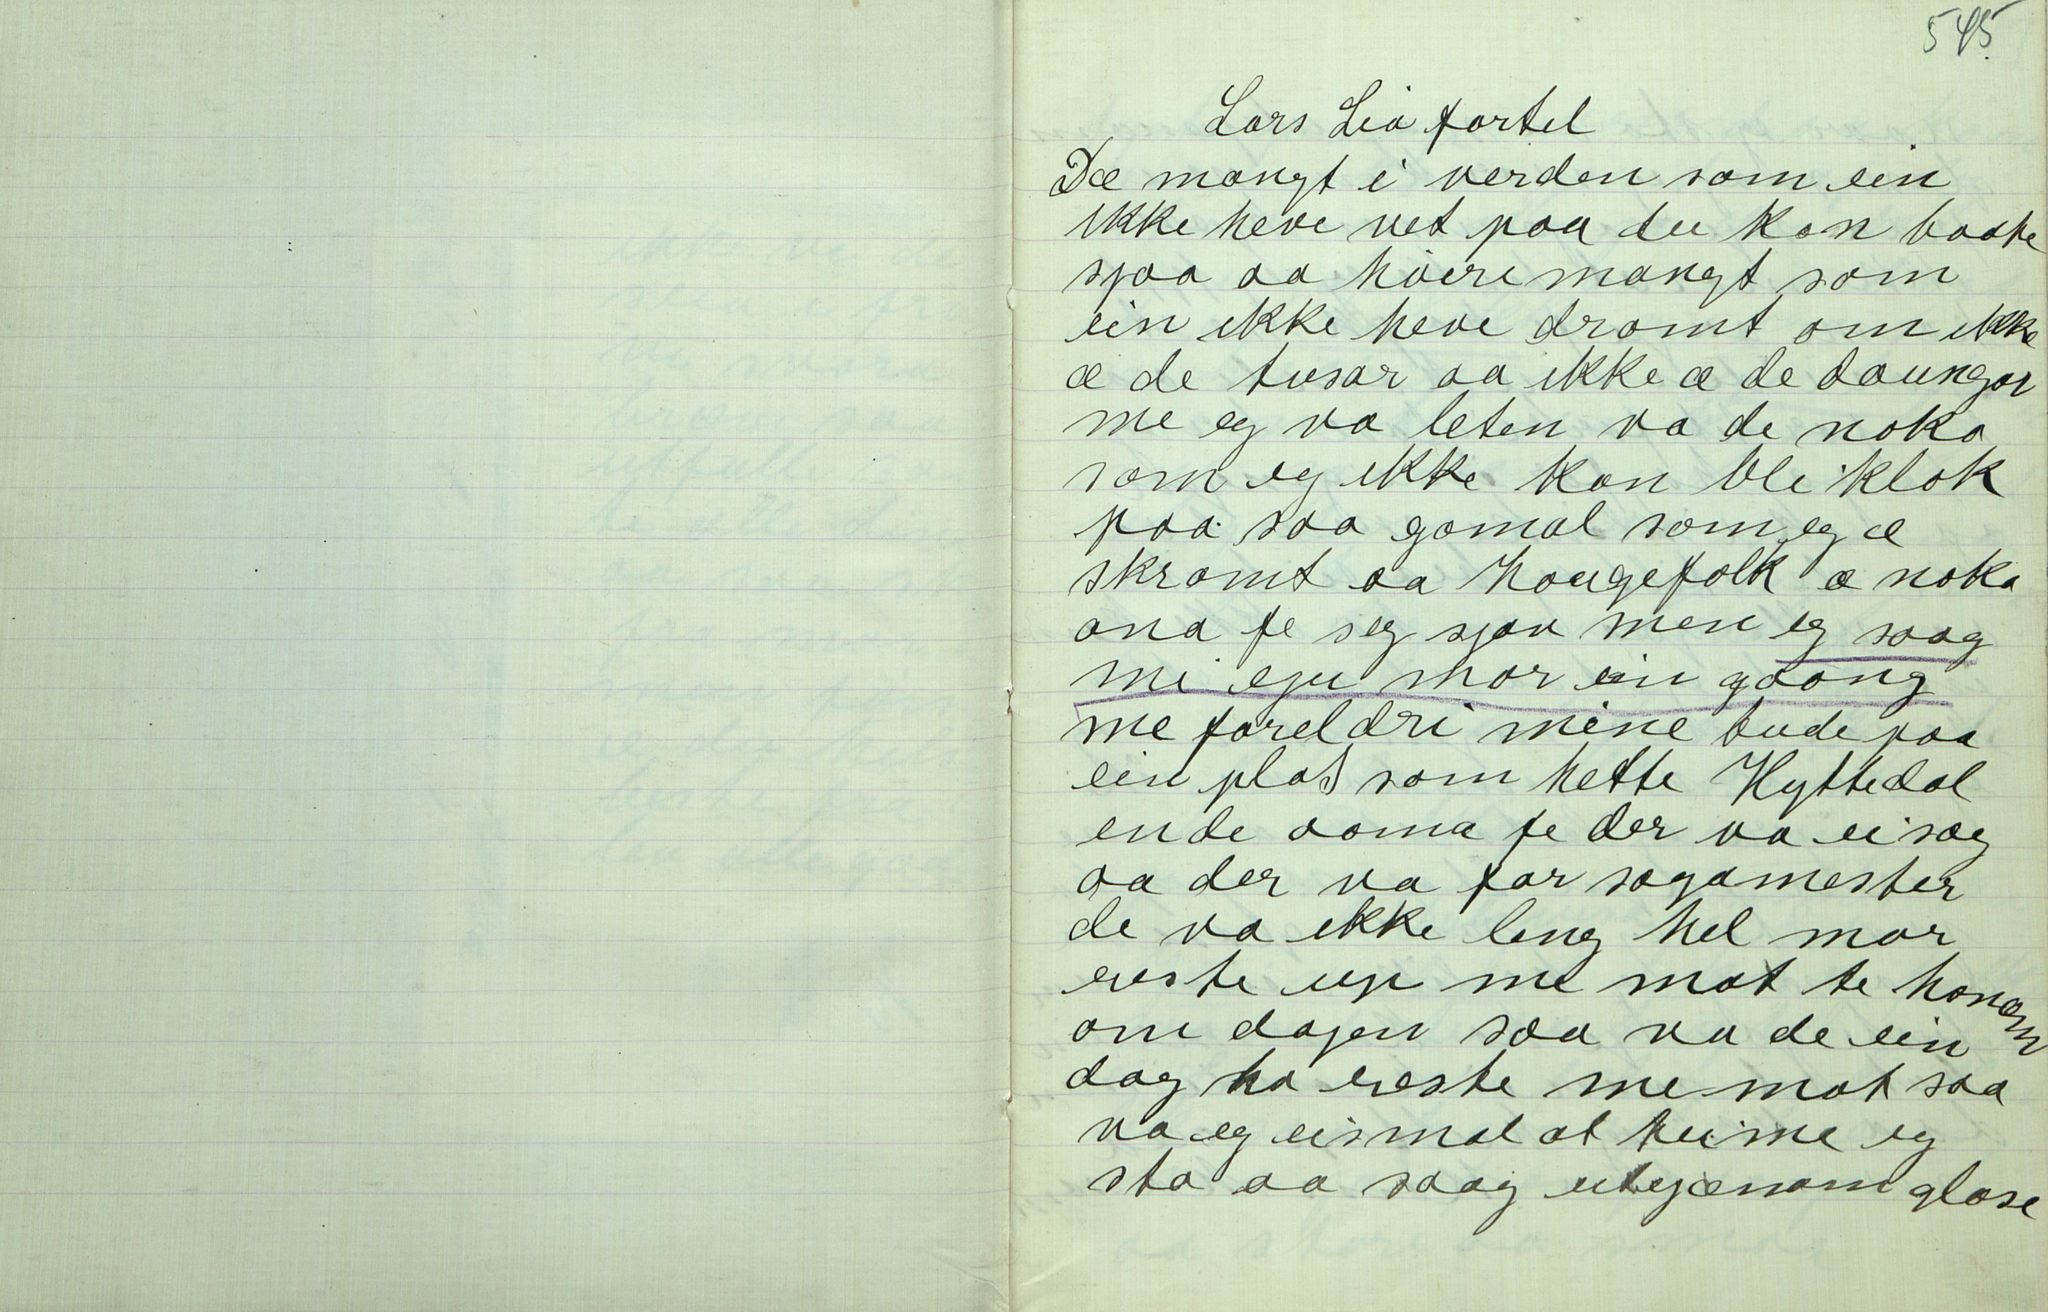 545
Lars Lia fortel
Dæ mangt i verden som ein
ikke heve vet paa du kan baate
sjaa aa høire mangt som
ein ikke heve dromt om ikke
æ de tusar aa ikke æ de daungar
me eg va leten va de noka
som eg ikke kan bli klok
paa saa gamal som eg æ
skromt aa Haugefolk æ noka
ana fe seg sjøv men eg saag
mi eju mor ein gaang
me foreldri mine bude paa
ein plas som hette Hyttedal
ende aama fe der va ei sag
aa der va far sagamester
de va ikke leng hel mor
reste up me mat te honom
om dagen saa va de ein
dag ho reste me mat saa
va eg eismal at heime eg
sto aa saag utgjænom glase